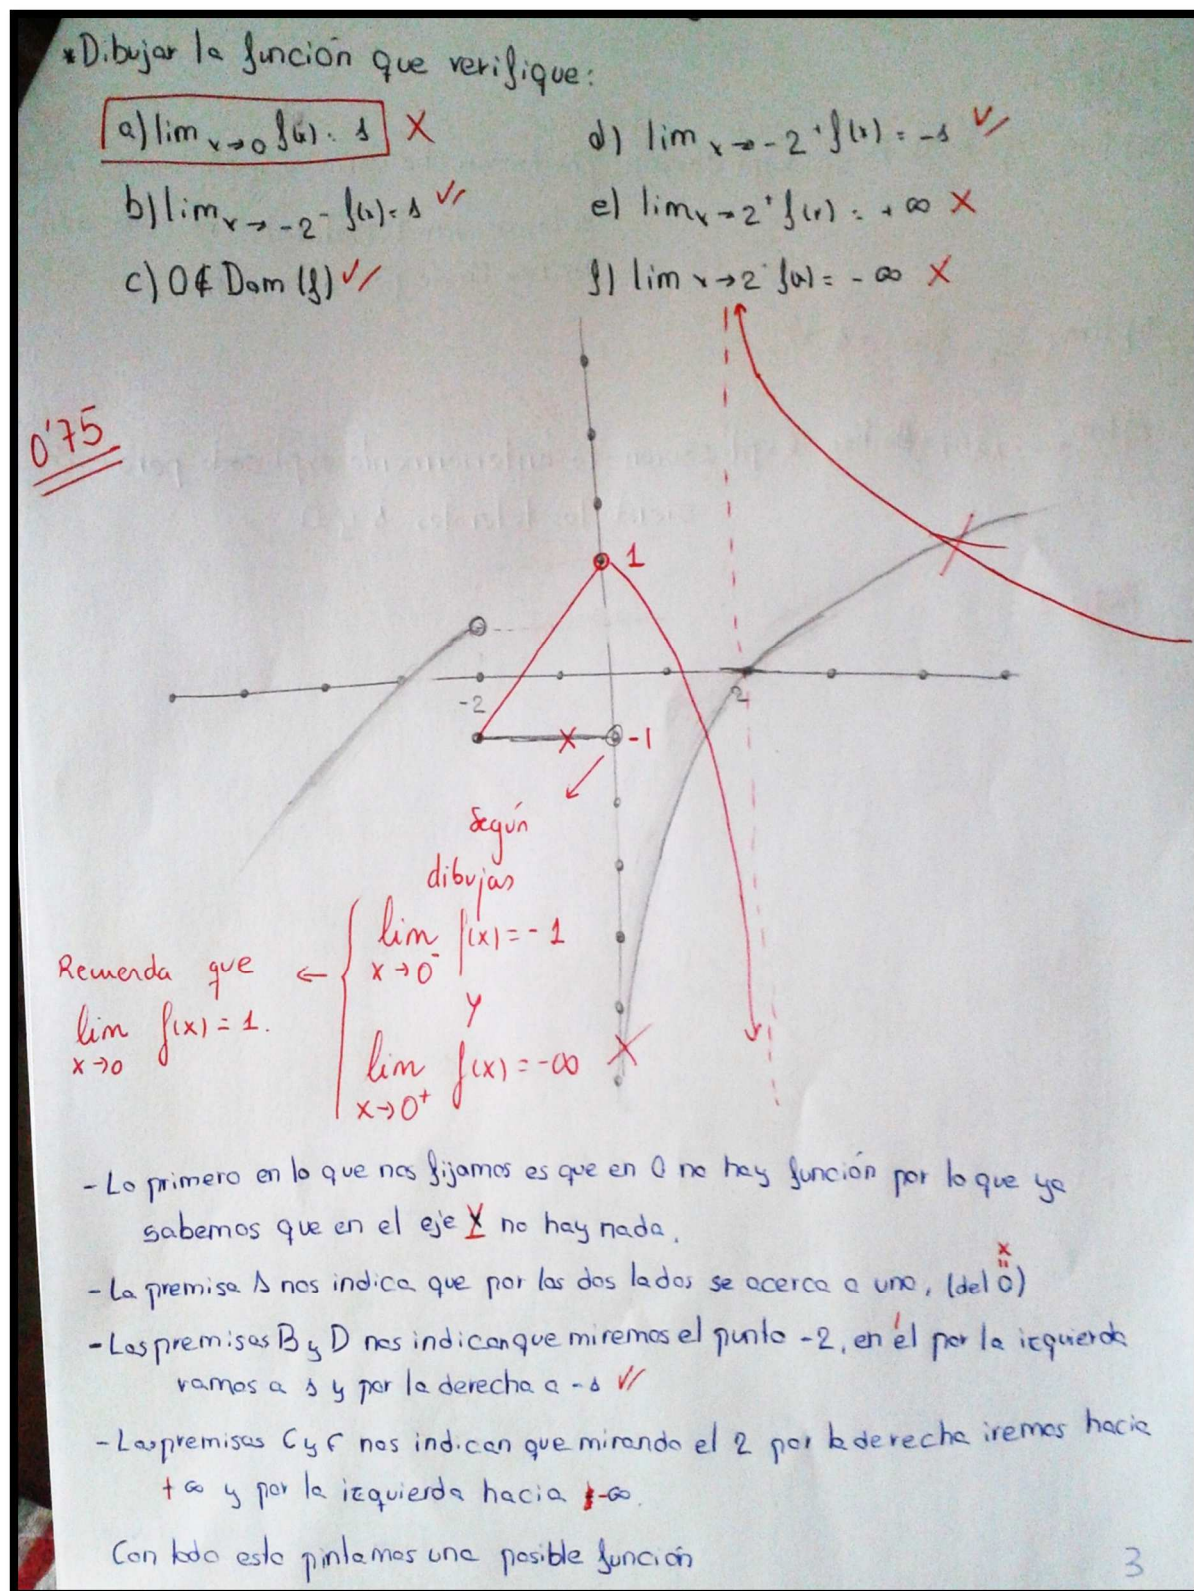 *Dibujar la función que verifique:
a) lim x→0 f(x) = 1 X
b) lim x→-2⁻ f(x) = 1 ✓
c) 0 ∉ Dom (f) ✓
d) lim x→-2⁺ f(x) = -1 ✓
e) lim x→2⁺ f(x) = +∞ X
f) lim x→2⁻ f(x) = -∞ X
0'75
1
-2
2
X -1
Según
dibujas
lim f(x) = -1
x→0⁻
y
lim f(x) = -∞ X
x→0⁺
Recuerda que ←
lim f(x) = 1.
x→0
- Lo primero en lo que nos fijamos es que en 0 no hay función por lo que ya
sabemos que en el eje Y no hay nada.
- La premisa A nos indica que por los dos lados se acerca a uno, (del 0)
x
"
- Las premisas B y D nos indican que miremos el punto -2, en él por la izquierda
vamos a 1 y por la derecha a -1 ✓
- Las premisas C y F nos indican que mirando el 2 por la derecha iremos hacia
+∞ y por la izquierda hacia -∞.
Con todo esto pintamos una posible función
3